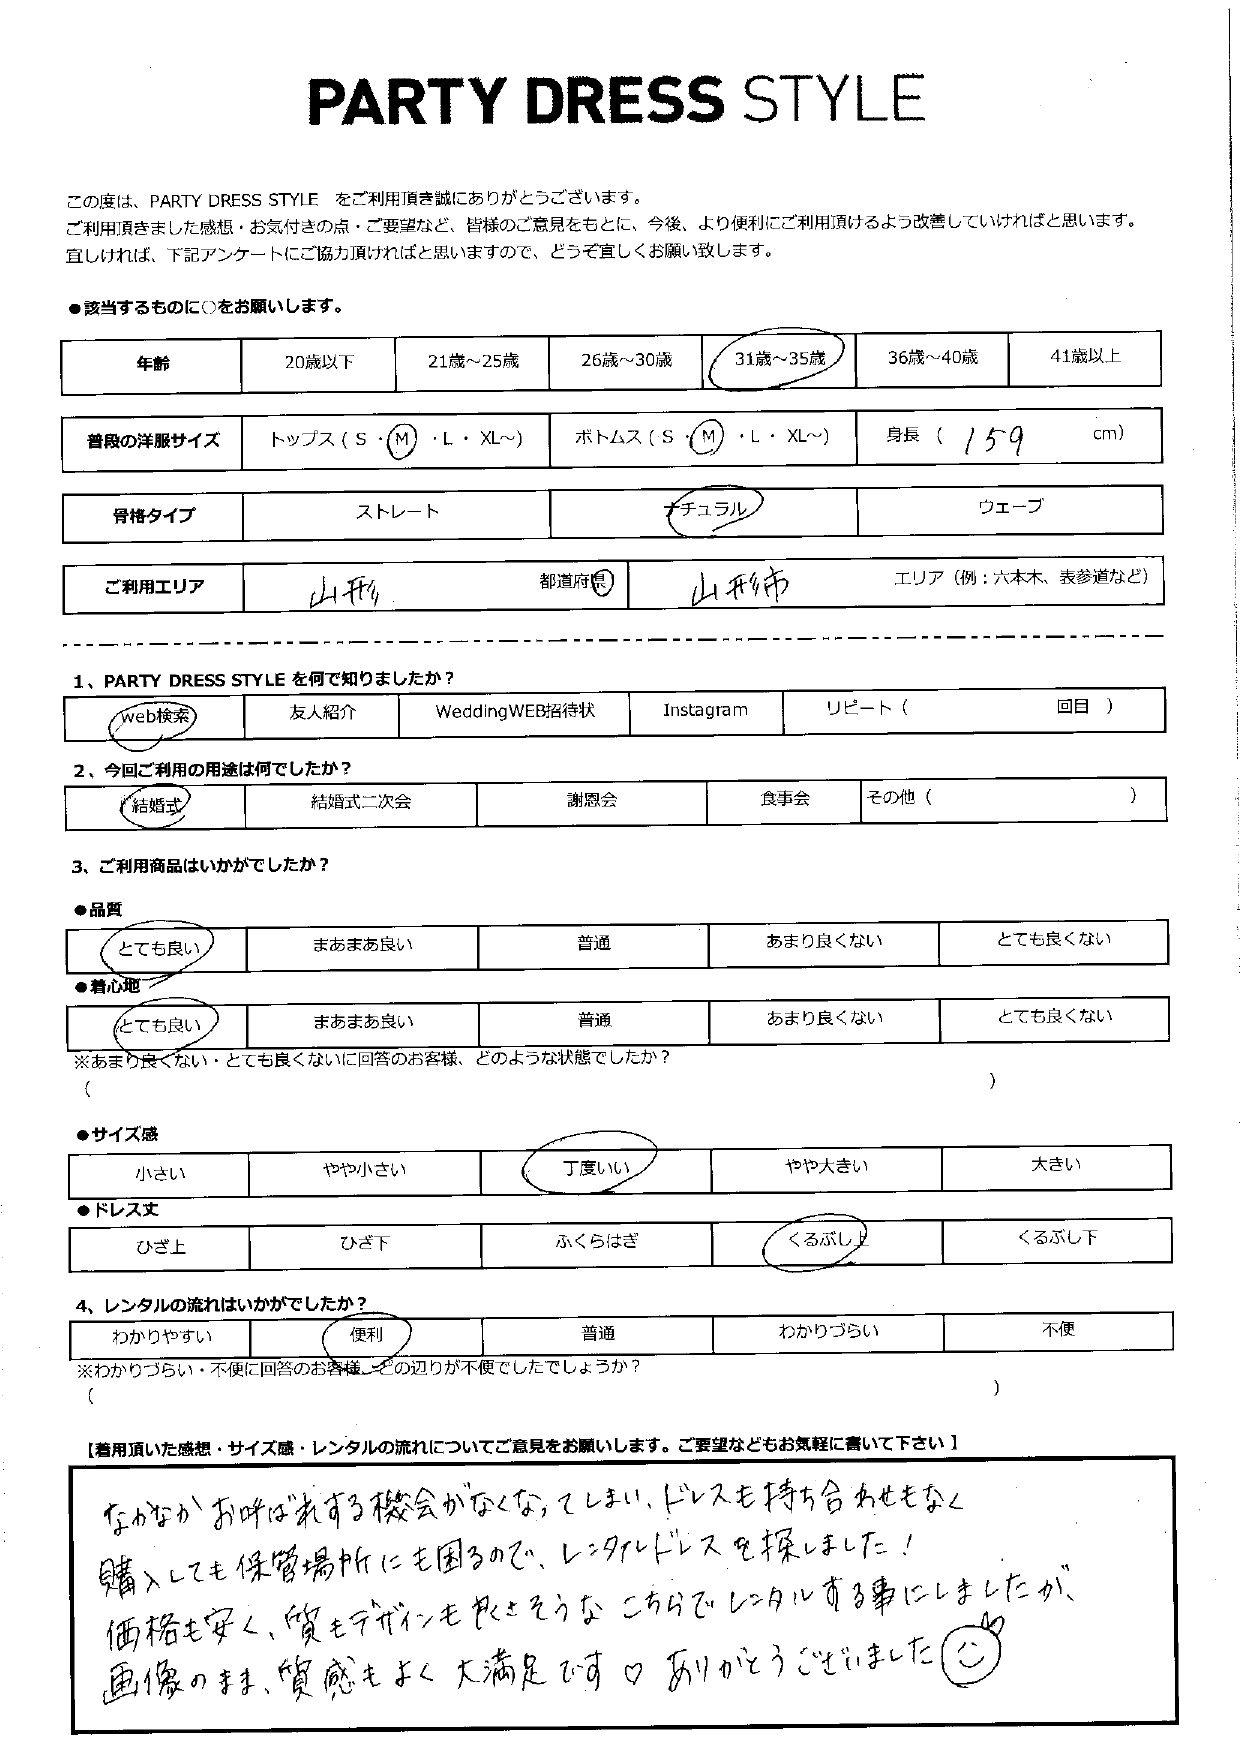 PARTY DRESS STYLE
この度は、PARTY DRESS STYLE をご利用頂き誠にありがとうございます。
ご利用頂きました感想・お気付きの点・ご要望など、皆様のご意見をもとに、今後、より便利にご利用頂けるよう改善していければと思います。
宜しければ、下記アンケートにご協力頂ければと思いますので、どうぞ宜しくお願い致します。
●該当するものに○をお願いします。
年齢 20歳以下 21歳～25歳 26歳～30歳 31歳～35歳 36歳～40歳 41歳以上
普段の洋服サイズ トップス（ S ・ M ・ L ・ XL～） ボトムス（ S ・ M ・ L ・ XL～） 身長 （ 159 cm）
骨格タイプ ストレート ナチュラル ウェーブ
ご利用エリア 山形 都道府県 山形市 エリア（例：六本木、表参道など）
1、PARTY DRESS STYLE を何で知りましたか？
web検索 友人紹介 WeddingWEB招待状 Instagram リピート（ 回目 ）
2、今回ご利用の用途は何でしたか？
結婚式 結婚式二次会 謝恩会 食事会 その他（ ）
3、ご利用商品はいかがでしたか？
●品質
とても良い まあまあ良い 普通 あまり良くない とても良くない
●着心地
とても良い まあまあ良い 普通 あまり良くない とても良くない
※あまり良くない・とても良くないに回答のお客様、どのような状態でしたか？
（ ）
●サイズ感
小さい やや小さい 丁度いい やや大きい 大きい
●ドレス丈
ひざ上 ひざ下 ふくらはぎ くるぶし上 くるぶし下
4、レンタルの流れはいかがでしたか？
わかりやすい 便利 普通 わかりづらい 不便
※わかりづらい・不便に回答のお客様、どの辺りが不便でしたでしょうか？
（ ）
【着用頂いた感想・サイズ感・レンタルの流れについてご意見をお願いします。ご要望などもお気軽に書いて下さい】
なかなかお呼ばれする機会がなくなってしまい、ドレスも持ち合わせもなく
購入しても保管場所にも困るので、レンタルドレスを探しました！
価格も安く、質もデザインも良さそうなこちらでレンタルする事にしましたが、
画像のまま、質感もよく大満足です♡ ありがとうございました